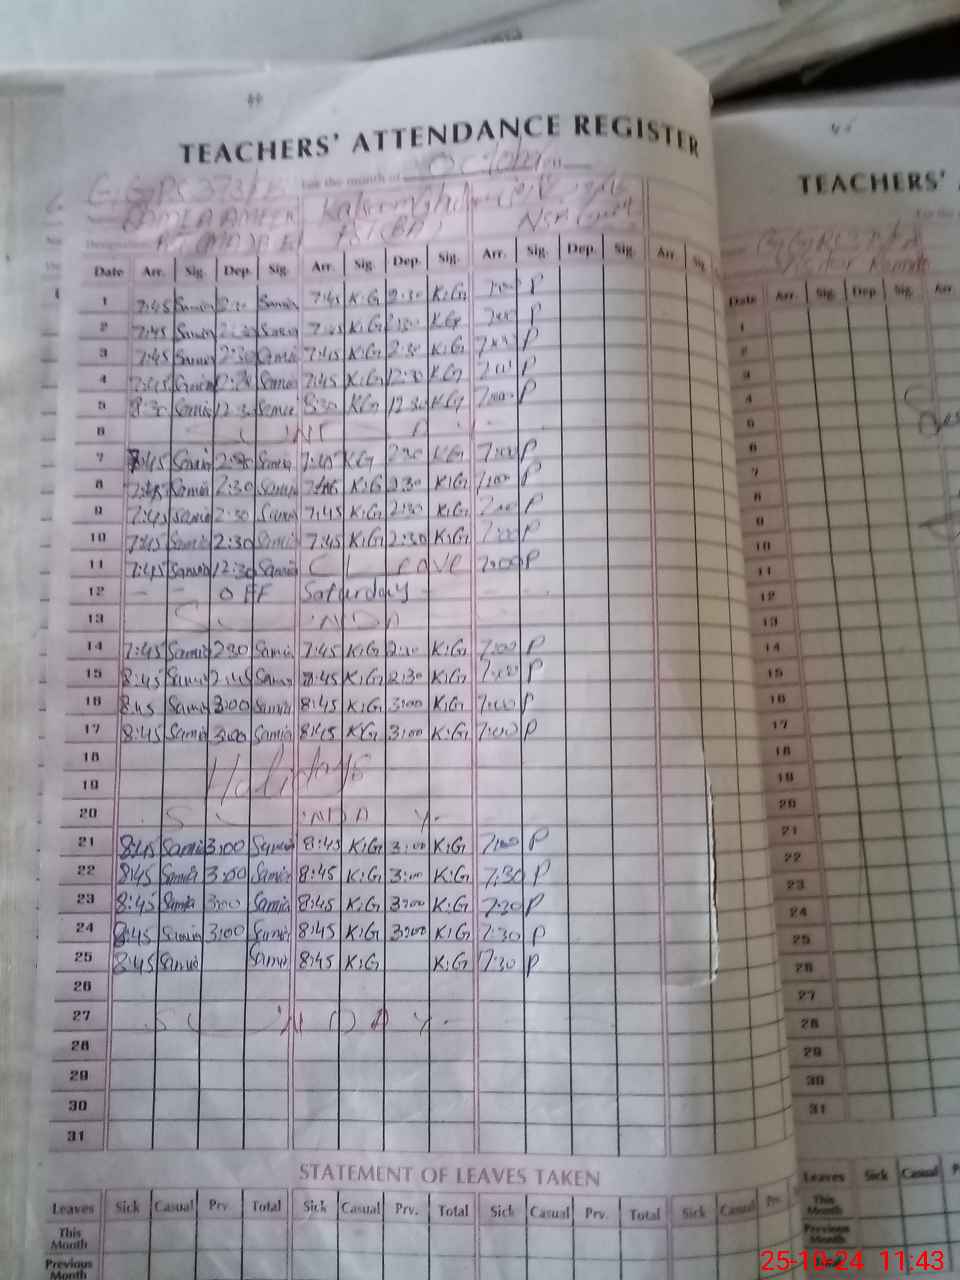 TEACHERS' ATTENDANCE REGISTER
For the month of October
Date Arr. Sig. Dep. Sig. Arr. Sig. Dep. Sig. Arr. Sig. Dep. Sig. Arr. Sig.
1 7:45 Samia 2:30 Samia 7:45 K.G 2:30 K.G 7:00 P
2 7:45 Samia 2:30 Samia 7:45 K.G KG 7:00 P
3 7:45 Samia 2:30 Samia 7:45 K.G 2:30 K.G 7:00 P
4 7:45 Samia 12:30 Samia 7:45 K.G 12:30 KG 7:00 P
5 8:30 Samia 12:30 Samia 8:30 KG 12:30 KG 7:00 P
6 SUNDAY
7 7:45 Samia 2:30 Samia 7:45 KG 2:30 KG 7:00 P
8 7:45 Samia 2:30 Samia 7:45 K.G 2:30 K.G 7:00 P
9 7:45 Samia 2:30 Samia 7:45 K.G 2:30 K.G 7:00 P
10 7:45 Samia 2:30 Samia 7:45 K.G 2:30 K.G 7:00 P
11 7:45 Samia 12:30 Samia C Leave 7:00 P
12 - - OFF Saturday -
13 SUNDA
14 7:45 Samia 2:30 Samia 7:45 K.G 2:30 K.G 7:00 P
15 8:45 Samia 2:45 Samia 8:45 K.G 2:30 K.G 7:00 P
16 8:45 Samia 3:00 Samia 8:45 K.G 3:00 K.G 7:00 P
17 8:45 Samia 3:00 Samia 8:45 KG 3:00 K.G 7:00 P
18
19 Holidays
20 SUNDAY
21 8:45 Samia 3:00 Samia 8:45 K.G 3:00 K.G 7:00 P
22 8:45 Samia 3:00 Samia 8:45 K.G 3:00 K.G 7:30 P
23 8:45 Samia 3:00 Samia 8:45 K.G 3:00 K.G 7:30 P
24 8:45 Samia 3:00 Samia 8:45 K.G 3:00 K.G 7:30 P
25 8:45 Samia Samia 8:45 K.G K.G 7:30 P
26
27 SUNDAY
28
29
30
31
STATEMENT OF LEAVES TAKEN
Leaves Sick Casual Prv. Total Sick Casual Prv. Total Sick Casual Prv. Total Sick Casual Prv.
This Month
Previous Month
TEACHERS'
Date Arr. Sig. Dep. Sig. Arr.
1
2
3
4
5
6
7
8
9
10
11
12
13
14
15
16
17
18
19
20
21
22
23
24
25
26
27
28
29
30
31
Leaves Sick Casual
This Month
Previous Month
25-10-24 11:43